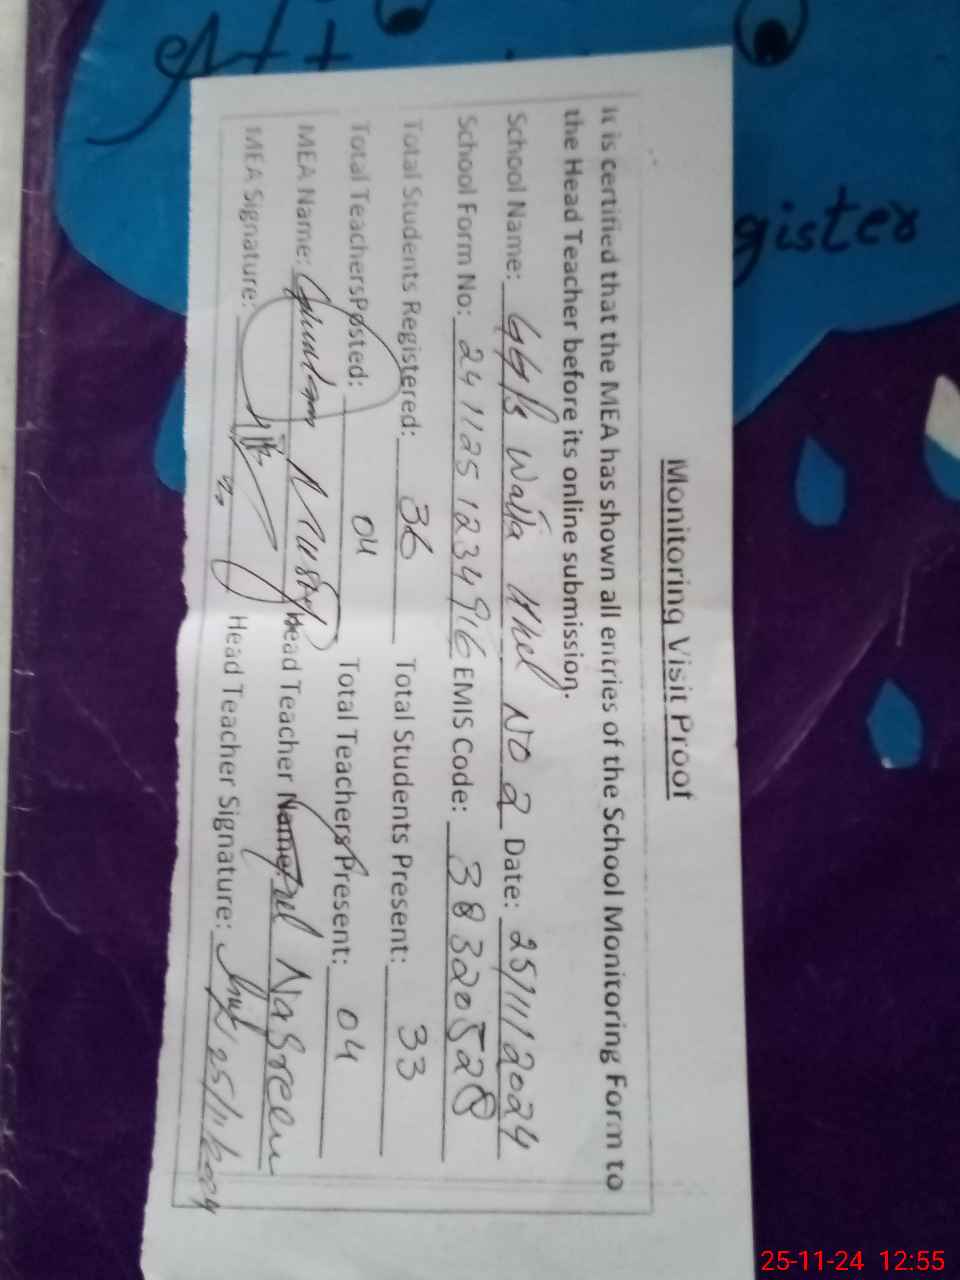 gister
Monitoring Visit Proof
It is certified that the MEA has shown all entries of the School Monitoring Form to
the Head Teacher before its online submission.
School Name: Walla Khel NO 2 Date: 25/11/2024
School Form No: 2411251234916 EMIS Code: 38320528
Total Students Registered: 36 Total Students Present: 33
Total TeachersPosted: 04 Total Teachers Present: 04
MEA Name: Head Teacher Name: Nasreen
MEA Signature: Head Teacher Signature: 25/11/2024
25-11-24 12:55